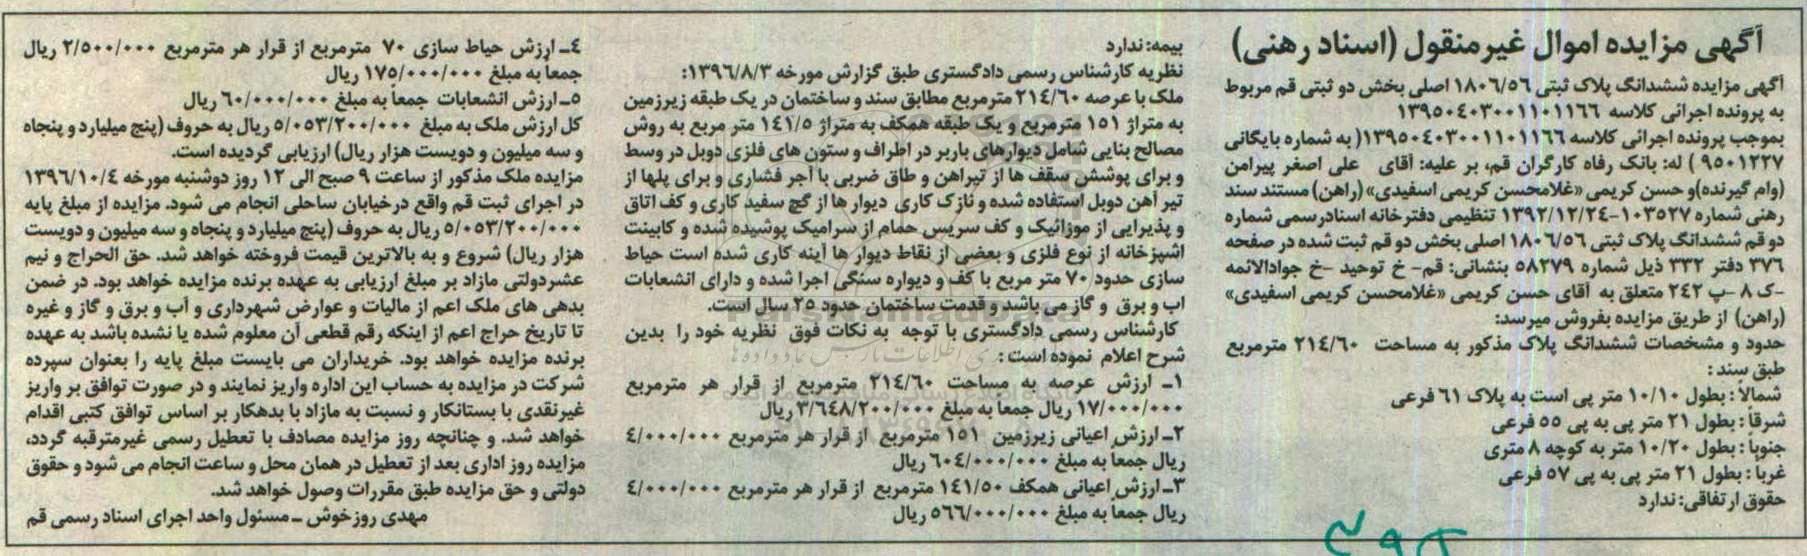 آگهی مزایده اموال غیرمنقول (اسناد رهنی)
آگهی مزایده ششدانگ پلاک ثبتی ۱۸۰۶/۵۶ اصلی بخش دو ثبتی قم مربوط
به پرونده اجرائی کلاسه ۱۳۹۵۰۴۰۳۰۰۱۱۰۱۱۶۶
بموجب پرونده اجرائی کلاسه ۱۳۹۵۰۴۰۳۰۰۱۱۰۱۱۶۶( به شماره بایگانی
۹۵۰۱۲۲۷ ) له: بانک رفاه کارگران قم، بر علیه: آقای علی اصغر پیرامن
(وام گیرنده)و حسن کریمی «غلامحسن کریمی اسفیدی» (راهن) مستند سند
رهنی شماره ۱۰۳۵۲۷-۱۳۹۲/۱۲/۲۴ تنظیمی دفترخانه اسنادرسمی شماره
دو قم ششدانگ پلاک ثبتی ۱۸۰۶/۵۶ اصلی بخش دو قم ثبت شده در صفحه
۳۷۶ دفتر ۳۳۲ ذیل شماره ۵۸۲۷۹ بنشانی: قم- خ توحید -خ جوادالائمه
-ک ۸ -پ ۲۴۲ متعلق به آقای حسن کریمی «غلامحسن کریمی اسفیدی»
(راهن) از طریق مزایده بفروش میرسد:
حدود و مشخصات ششدانگ پلاک مذکور به مساحت ۲۱۴/۶۰ مترمربع
طبق سند :
شمالاً : بطول ۱۰/۱۰ متر پی است به پلاک ۶۱ فرعی
شرقاً : بطول ۲۱ متر پی به پی ۵۵ فرعی
جنوباً : بطول ۱۰/۲۰ متر به کوچه ۸ متری
غرباً : بطول ۲۱ متر پی به پی ۵۷ فرعی
حقوق ارتفاقی: ندارد
بیمه: ندارد
نظریه کارشناس رسمی دادگستری طبق گزارش مورخه ۱۳۹۶/۸/۳:
ملک با عرصه ۲۱۴/۶۰ مترمربع مطابق سند و ساختمان در یک طبقه زیرزمین
به متراژ ۱۵۱ مترمربع و یک طبقه همکف به متراژ ۱۴۱/۵ متر مربع به روش
مصالح بنایی شامل دیوارهای باربر در اطراف و ستون های فلزی دوبل در وسط
و برای پوشش سقف ها از تیرآهن و طاق ضربی با آجر فشاری و برای پلها از
تیر آهن دوبل استفاده شده و نازک کاری دیوار ها از گچ سفید کاری و کف اتاق
و پذیرایی از موزائیک و کف سریس حمام از سرامیک پوشیده شده و کابینت
آشپزخانه از نوع فلزی و بعضی از نقاط دیوار ها آینه کاری شده است حیاط
سازی حدود ۷۰ متر مربع با کف و دیواره سنگی اجرا شده و دارای انشعابات
آب و برق و گاز می باشد و قدمت ساختمان حدود ۲۵ سال است.
کارشناس رسمی دادگستری با توجه به نکات فوق نظریه خود را بدین
شرح اعلام نموده است :
۱- ارزش عرصه به مساحت ۲۱۴/۶۰ مترمربع از قرار هر مترمربع
۱۷/۰۰۰/۰۰۰ ریال جمعا به مبلغ ۳/۶۴۸/۲۰۰/۰۰۰ ریال
۲- ارزش اعیانی زیرزمین ۱۵۱ مترمربع از قرار هر مترمربع ۴/۰۰۰/۰۰۰
ریال جمعاً به مبلغ ۶۰۴/۰۰۰/۰۰۰ ریال
۳- ارزش اعیانی همکف ۱۴۱/۵۰ مترمربع از قرار هر مترمربع ۴/۰۰۰/۰۰۰
ریال جمعاً به مبلغ ۵۶۶/۰۰۰/۰۰۰ ریال
۴- ارزش حیاط سازی ۷۰ مترمربع از قرار هر مترمربع ۲/۵۰۰/۰۰۰ ریال
جمعاً به مبلغ ۱۷۵/۰۰۰/۰۰۰ ریال
۵- ارزش انشعابات جمعاً به مبلغ ۶۰/۰۰۰/۰۰۰ ریال
کل ارزش ملک به مبلغ ۵/۰۵۳/۲۰۰/۰۰۰ ریال به حروف (پنج میلیارد و پنجاه
و سه میلیون و دویست هزار ریال) ارزیابی گردیده است.
مزایده ملک مذکور از ساعت ۹ صبح الی ۱۲ روز دوشنبه مورخه ۱۳۹۶/۱۰/۴
در اجرای ثبت قم واقع درخیابان ساحلی انجام می شود. مزایده از مبلغ پایه
۵/۰۵۳/۲۰۰/۰۰۰ ریال به حروف (پنج میلیارد و پنجاه و سه میلیون و دویست
هزار ریال) شروع و به بالاترین قیمت فروخته خواهد شد. حق الحراج و نیم
عشردولتی مازاد بر مبلغ ارزیابی به عهده برنده مزایده خواهد بود. در ضمن
بدهی های ملک اعم از مالیات و عوارض شهرداری و آب و برق و گاز و غیره
تا تاریخ حراج اعم از اینکه رقم قطعی آن معلوم شده یا نشده باشد به عهده
برنده مزایده خواهد بود. خریداران می بایست مبلغ پایه را بعنوان سپرده
شرکت در مزایده به حساب این اداره واریز نمایند و در صورت توافق بر واریز
غیرنقدی با بستانکار و نسبت به مازاد با بدهکار بر اساس توافق کتبی اقدام
خواهد شد. و چنانچه روز مزایده مصادف با تعطیل رسمی غیرمترقبه گردد،
مزایده روز اداری بعد از تعطیل در همان محل و ساعت انجام می شود و حقوق
دولتی و حق مزایده طبق مقررات وصول خواهد شد.
مهدی روزخوش - مسئول واحد اجرای اسناد رسمی قم